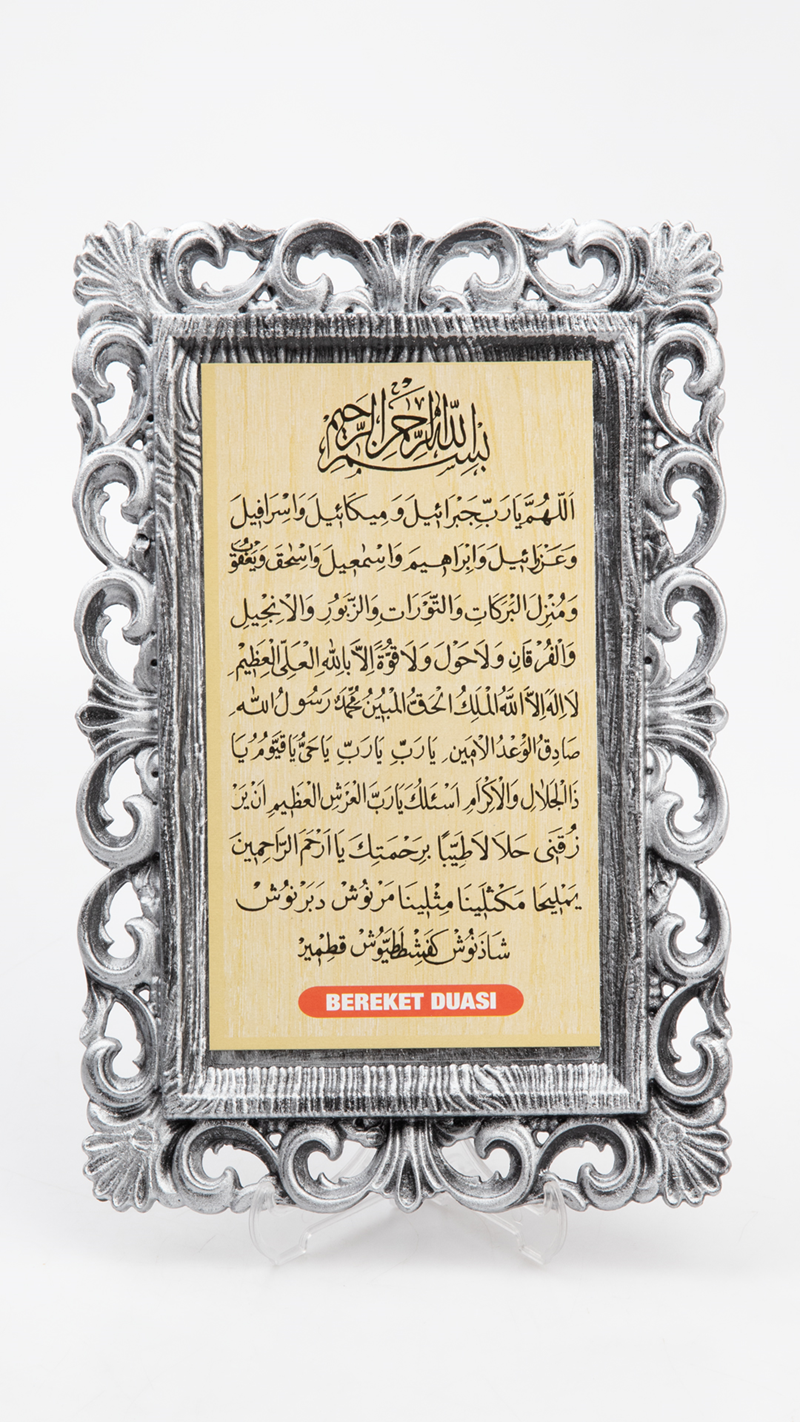 بسم الله الرحمن الرحيم
اَللّٰهُمَّ يَا رَبِّ جَبْرَائِيلَ وَمِيكَائِيلَ وَاِسْرَافِيلَ
وَعَزْرَائِيلَ وَاِبْرَاهِيمَ وَاِسْمٰعِيلَ وَاِسْحٰقَ وَيَعْقُوبَ
وَمُنْزِلَ الْبَرَكَاتِ وَالتَّوْرَاتِ وَالزَّبُورِ وَالْاِنْجِيلِ
وَالْفُرْقَانِ وَلَاحَوْلَ وَلَاقُوَّةَ اِلَّا بِاللّٰهِ الْعَلِىِّ الْعَظِيْمِ
لَا اِلٰهَ اِلَّا اللّٰهُ الْمَلِكُ الْحَقُّ الْمُبِيْنُ مُحَمَّدٌ رَسُولُ اللّٰهِ
صَادِقُ الْوَعْدِ الْاَمِينِ يَارَبِّ يَارَبِّ يَاحَىُّ يَاقَيُّومُ يَا
ذَا الْجَلَالِ وَالْاِكْرَامِ اَسْئَلُكَ يَارَبَّ الْعَرْشِ الْعَظِيمِ اَنْ يَرْ
زُقَنِى حَلَالًا طَيِّبًا بِرَحْمَتِكَ يَا اَرْحَمَ الرَّاحِمِينَ
يَمْلِيخَا مَكْثَلِينَا مِثْلِينَا مَرْنُوشْ دَبَرْنُوشْ
شَاذَنُوشْ كَفَشْطَطَيُّوشْ قِطْمِيرْ
BEREKET DUASI